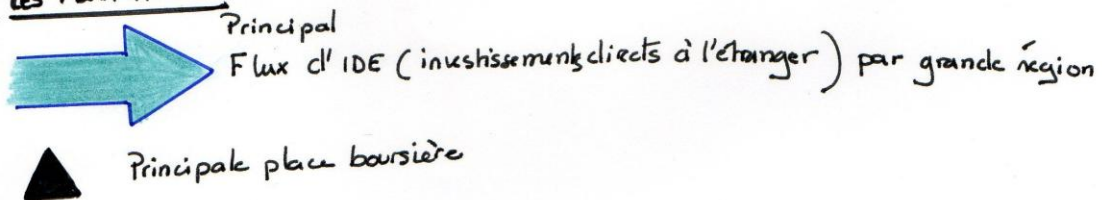 Les
Principal
Flux d'IDE (investissements directs à l'étranger) par grande région
Principale place boursière